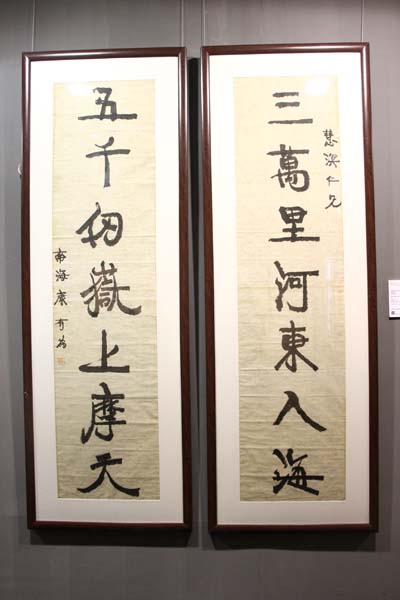 慧深仁兄
三萬里河東入海
五千仞嶽上摩天
南海康有為